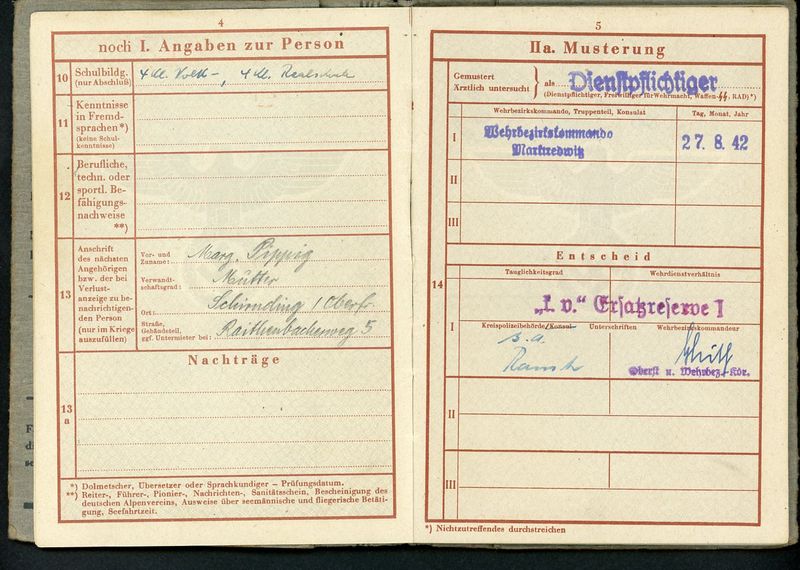 4
noch I. Angaben zur Person
10 Schulbildg. (nur Abschluß)
4 Kl. Volks-, 4 Kl. Realschule
11 Kenntnisse in Fremdsprachen*) (keine Schulkenntnisse)
12 Berufliche, techn. oder sportl. Befähigungsnachweise **)
13 Anschrift des nächsten Angehörigen bzw. der bei Verlustanzeige zu benachrichtigenden Person (nur im Kriege auszufüllen)
Vor- und Zuname: Marg. Pippig
Verwandtschaftsgrad: Mutter
Ort: Schirnding / Oberfr.
Straße, Gebäudeteil, ggf. Untermieter bei: Raithenbacherweg 5
13 a
Nachträge
*) Dolmetscher, Übersetzer oder Sprachkundiger – Prüfungsdatum.
**) Reiter-, Führer-, Pionier-, Nachrichten-, Sanitätsschein, Bescheinigung des
deutschen Alpenvereins, Ausweise über seemännische und fliegerische Betäti-
gung, Seefahrtzeit.
5
14
IIa. Musterung
Gemustert
Ärztlich untersucht } als Dienstpflichtiger
(Dienstpflichtiger, Freiwilliger für Wehrmacht, Waffen-SS, RAD)*)
Wehrbezirkskommando, Truppenteil, Konsulat
Tag, Monat, Jahr
I Wehrbezirkskommando
Marktredwitz
27. 8. 42
II
III
Entscheid
Tauglichkeitsgrad
Wehrdienstverhältnis
„k. v.“ Ersatzreserve I
I
Kreispolizeibehörde/Konsul Unterschriften Wehrbezirkskommandeur
Oberst u. Wehrbez.-Kdr.
II
III
*) Nichtzutreffendes durchstreichen